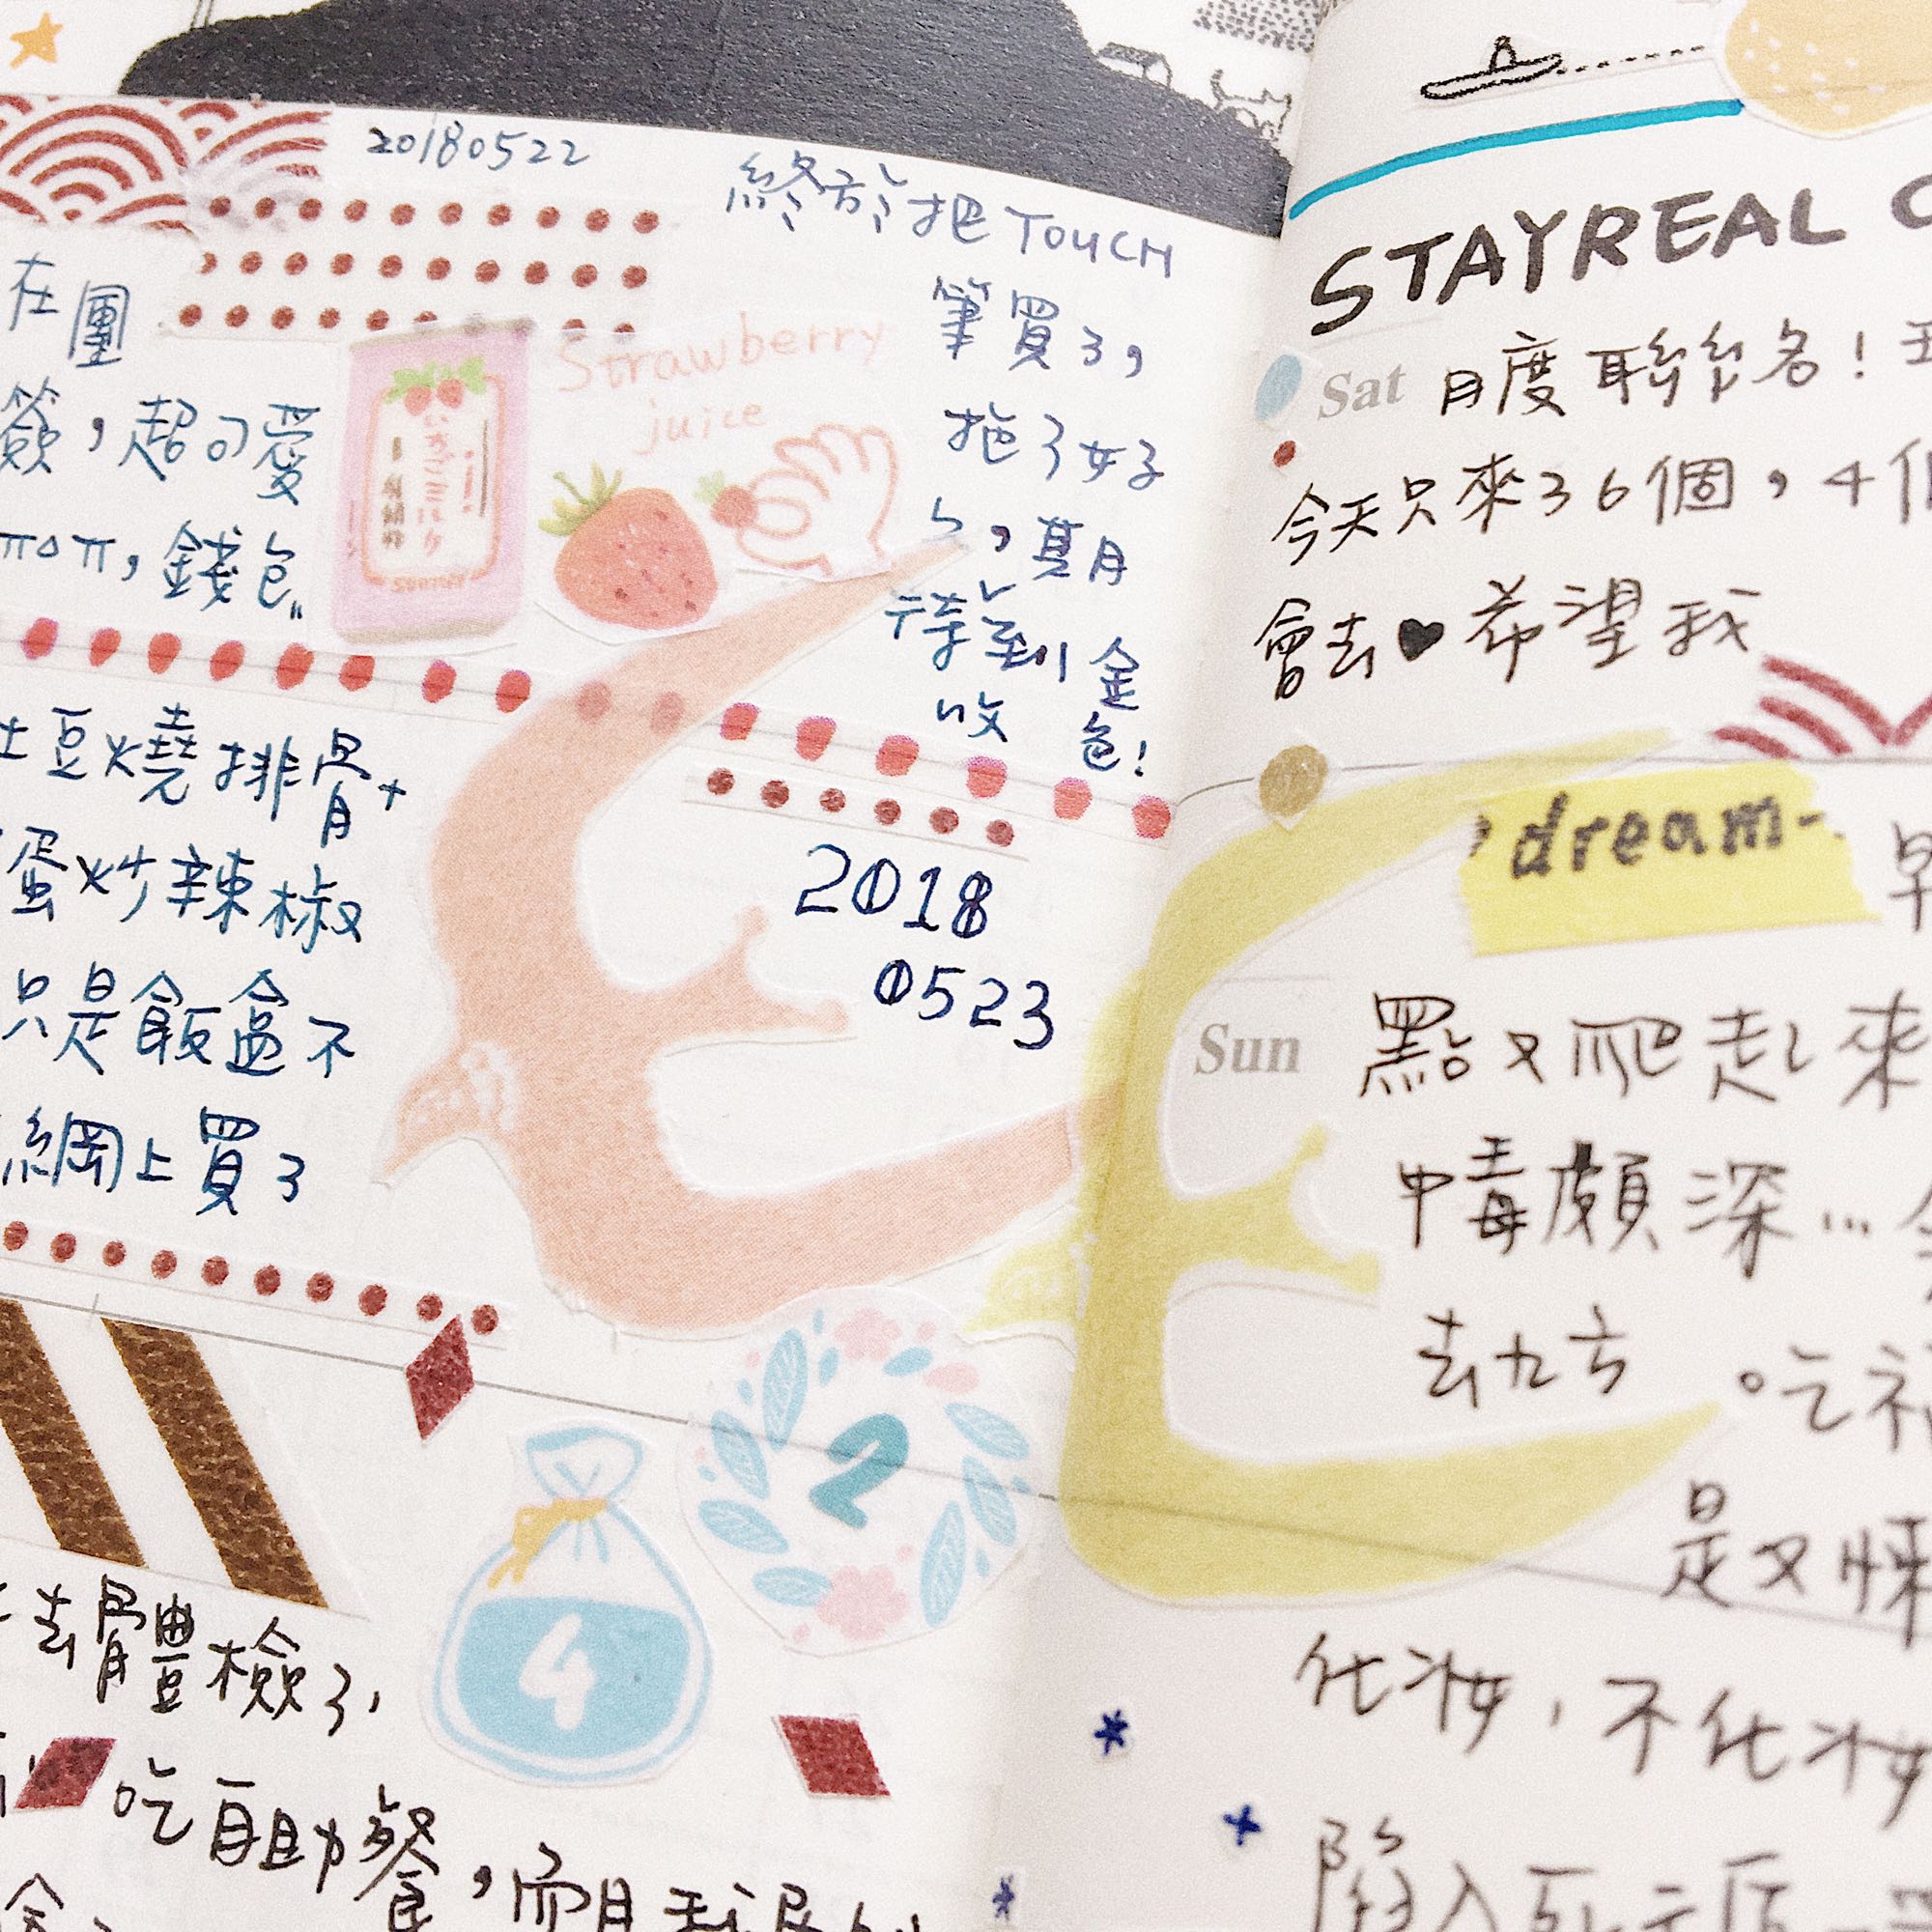 20180522
終於把TOUCH
筆買了，
拖了好
久，期
待到金
收 色！
在團
簽，超可愛
錢包。
Strawberry
juice
土豆燒排骨+
蛋炒辣椒
只是飯盒不
網上買了
2018
0523
2
4
去體檢了，
吃自助餐，而且我
STAYREAL
Sat 月度聯名！
今天只來36個，4個
會去♥希望我
dream
早
Sun 點又爬起來
中毒頗深...
去九方。吃
是又
化妝，不化妝
陷入死